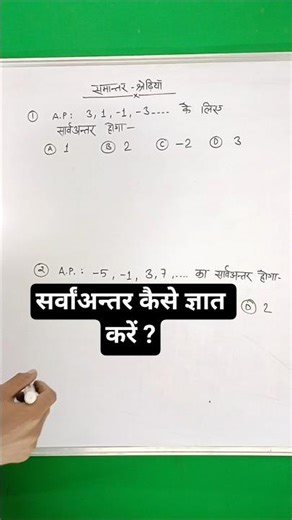 समान्तर - श्रेढियाँ
① A.P: 3, 1, -1, -3.... के लिए
सार्वअन्तर होगा -
Ⓐ 1 Ⓑ 2 Ⓒ -2 Ⓓ 3
② A.P.: -5, -1, 3, 7,.... का सार्वअन्तर होगा-
Ⓓ 2
सर्वांअन्तर कैसे ज्ञात
करें ?